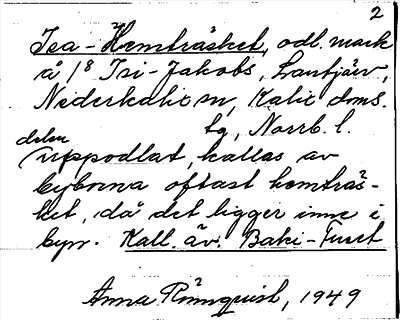 2
Isa-Hemträsket, odl. mark
å 1/8 Isi-Jakobs, Lantjärv,
Nederkalix sn, Kalix doms.
tg, Norrb. l.
delen
uppodlat, kallas av
byborna oftast hemträs-
ket, då det ligger inne i
byn. Kall. äv. Baki-Fuset
Anna Rönnquist, 1949